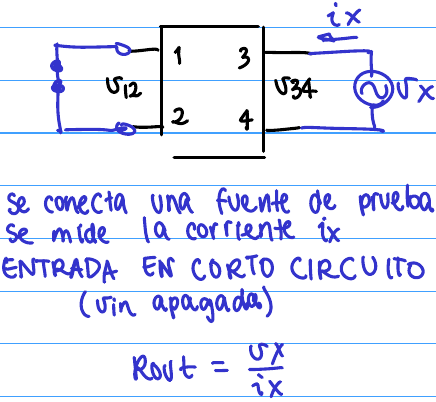 ix
1 3
υ12 υ34 υx
2 4
se conecta una fuente de prueba
se mide la corriente ix
ENTRADA EN CORTO CIRCUITO
(υin apagada)
Rout = υx/ix